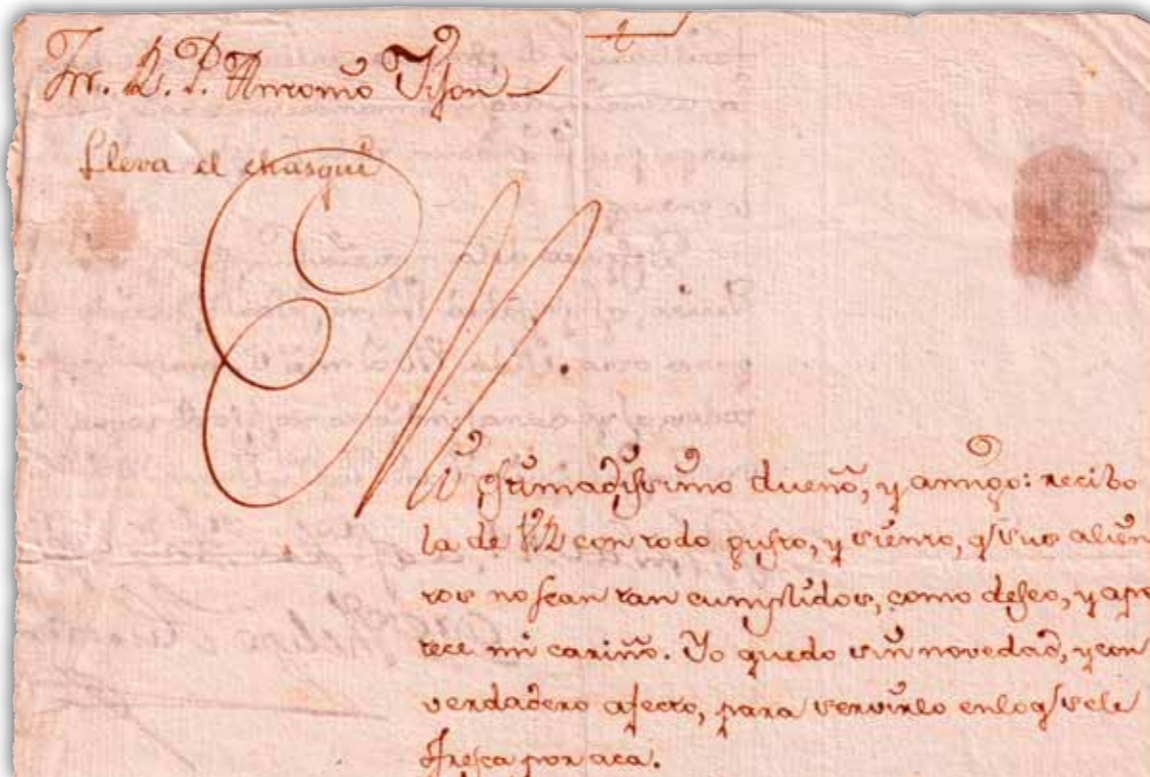 M. R. P. Antonio Tison
Lleva el chasqui
Mi estimadissimo dueño, y amigo: recibo
la de VR con todo gusto, y siento, q sus alien
tos no sean tan cumplidos, como deseo, y ape
tece mi cariño. Yo quedo sin novedad, y con
verdadero afecto, para servirlo enloq sele
ofresca por aca.